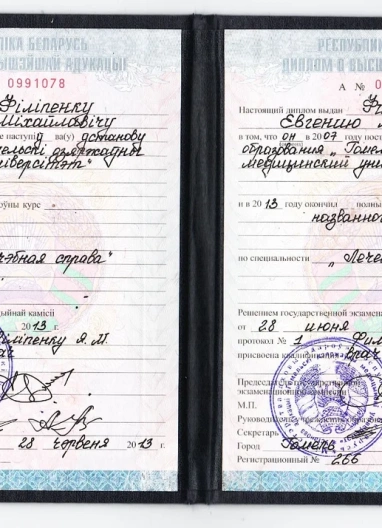 ІКА БЕЛАРУСЬ
0991078
Філіпенку
Міхайлавічу
е наступіў ва(у) установу
ельскі дзяржаўны
ніверсітэт"
оўны курс
чэбная справа"
цыйнай камісіі
2013 г.
Філіпенку Я.М.
28 червеня 2013 г.
РЕСПУБЛИ
ДИПЛОМ О ВЫС
А №
Настоящий диплом выдан
Евгению
в том, что он в 2007 году пост
образования „Гомел
медицинский уни
и в 2013 году окончил полн
названного
по специальности „Лече
Решением государственной экзамена
от 28 июня
протокол № 1 Фил
присвоена квалификация врач
Председатель государственной
экзаменационной комиссии
М.П.
Руководитель
Секретарь
Город Гомель,
Регистрационный № 266